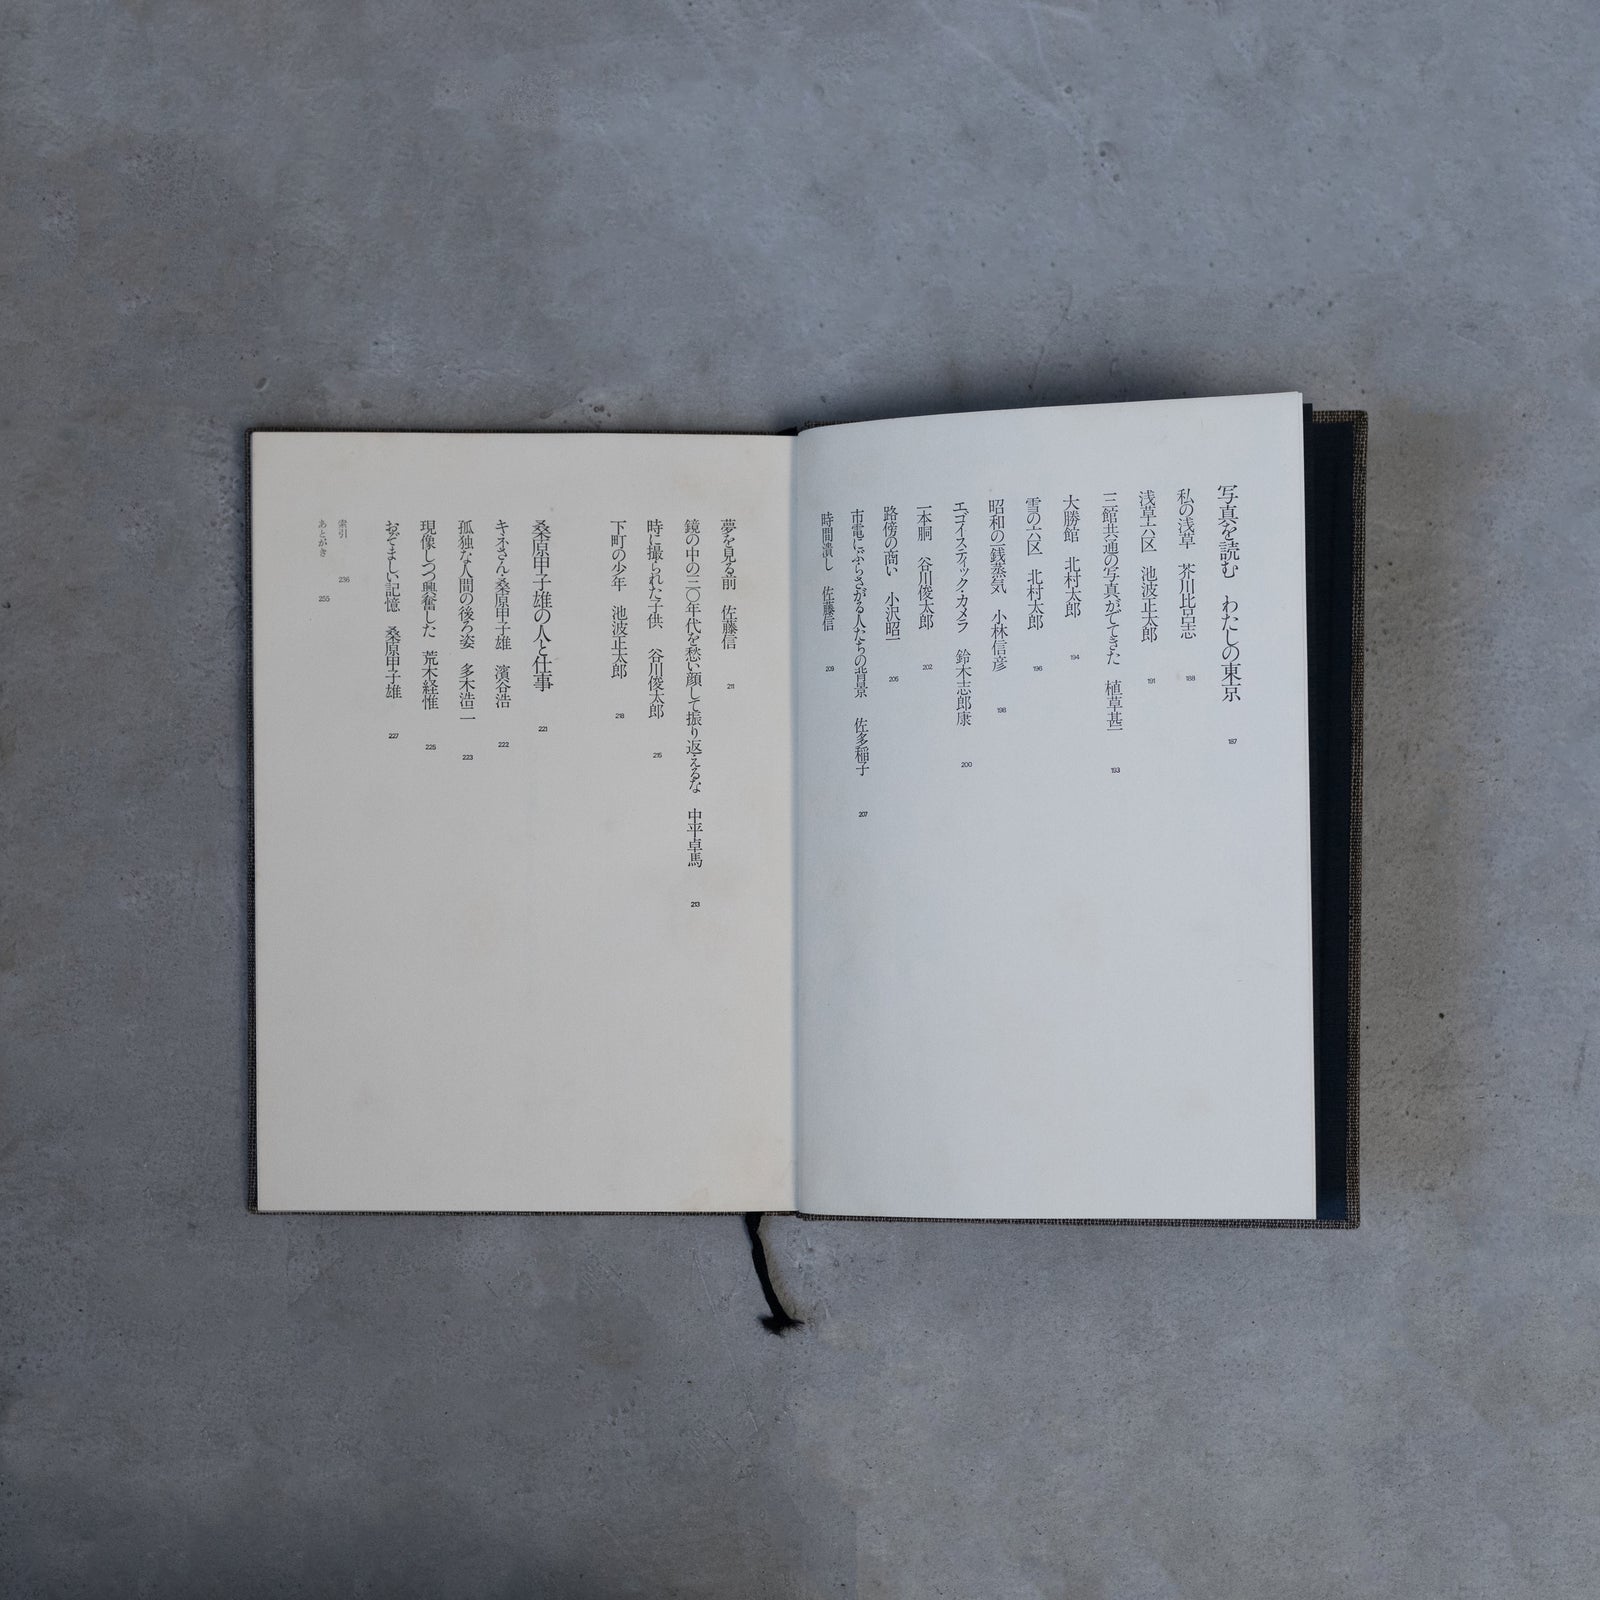 写真を読む わたしの東京 187
私の浅草 芥川比呂志 188
浅草六区 池波正太郎 191
三館共通の写真がでてきた 植草甚一 193
大勝館 北村太郎 194
雪の六区 北村太郎 196
昭和の一銭蒸気 小林信彦 198
エゴイスティック・カメラ 鈴木志郎康 200
一本胴 谷川俊太郎 202
路傍の商い 小沢昭一 206
市電にぶらさがる人たちの背景 佐多稲子 207
時間潰し 佐藤信 209
夢を見る前 佐藤信 211
鏡の中の三〇年代を愁い顔して振り返えるな 中平卓馬 213
時に撮られた子供 谷川俊太郎 215
下町の少年 池波正太郎 218
桑原甲子雄の人と仕事 221
キネさん・桑原甲子雄 濱谷浩 222
孤独な人間の後ろ姿 多木浩二 223
現像しつつ興奮した 荒木経惟 225
おぞましい記憶 桑原甲子雄 227
索引 236
あとがき 255